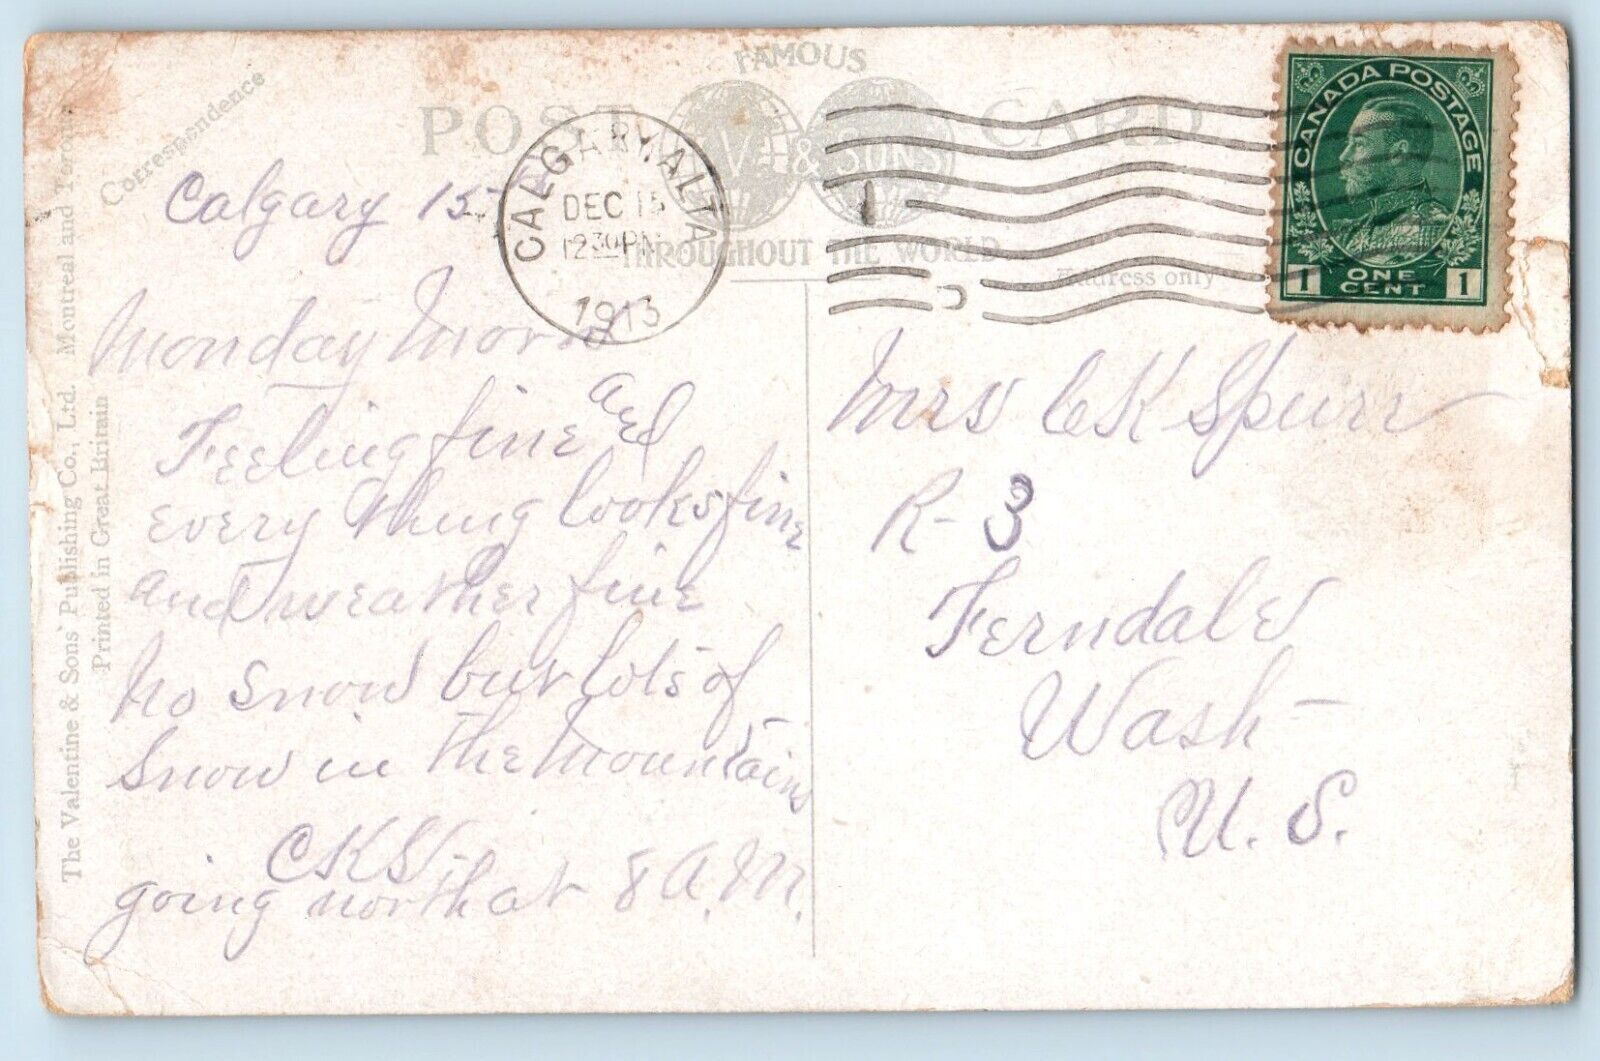 Correspondence
FAMOUS
POST CARD
V & SONS
THROUGHOUT THE WORLD
Address only
CALGARY, ALTA
DEC 15
12 30 PM
1913
CANADA POSTAGE
1 ONE CENT 1
Calgary 15
Monday Morn
Feeling fine and
every thing looks fine
and weather fine
no snow but lots of
snow in the mountains
CKS
going north at 8 A.M.
Mrs C K Spurr
R-3
Ferndale
Wash-
U. S.
The Valentine & Sons' Publishing Co., Ltd. Montreal and Toronto.
Printed in Great Britain